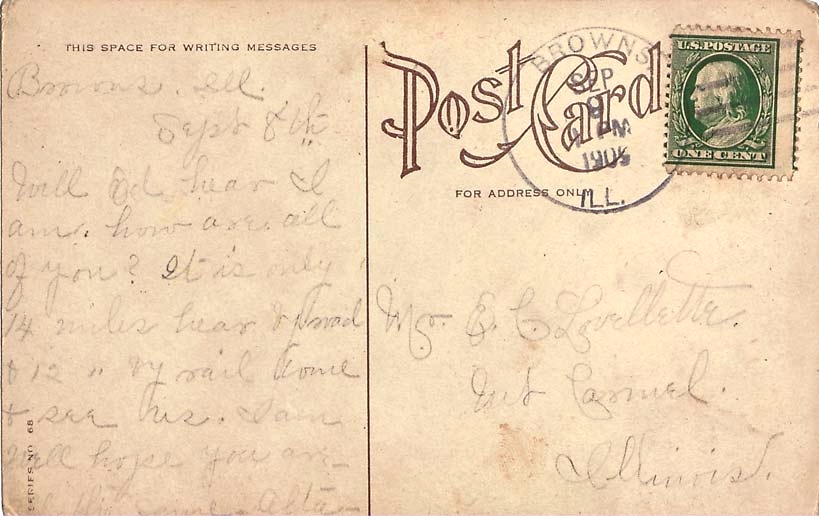 THIS SPACE FOR WRITING MESSAGES
Post Card
FOR ADDRESS ONLY
BROWNS
SEP
9
PM
ILL.
U.S. POSTAGE
ONE CENT
Browns. Ill.
Sept 8th
Will Ed hear I
am. how are all
of you? It is only
14 miles hear by road
& 12 " by rail Come
& see us. I am
Well hope you are
the same
Mr. E. C. Lovellette.
Mt Carmel.
Illinois.
SERIES NO 68